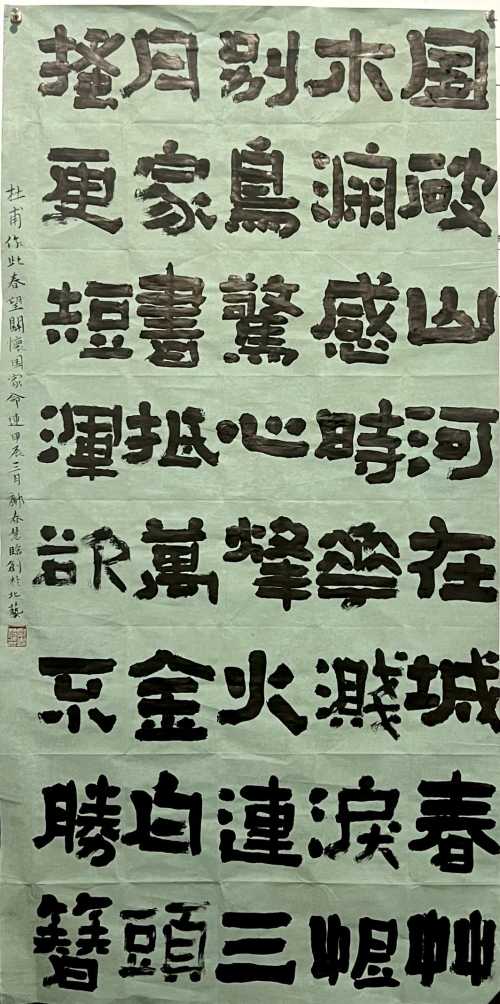 国破山河在城春艸
木深感時華濺淚恨
别鳥驚心烽火連三
月家書抵萬金白頭
搔更短渾欲不勝簪
杜甫作此春望關懷国家命運甲辰三月春慧臨創於北藝